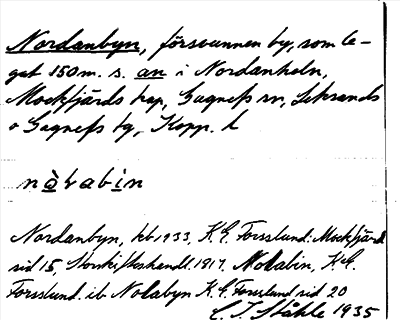 Nordanbyn, försvunnen by, som le-
gat 150 m. s. an i Nordanholn,
Mockfjärds kap, Gagnefs sn, Leksands
o Gagnefs tg, Kopp. l
nàvabin
Nordanbyn, kb 1933, K.E. Forsslund: Mockfjärd
sid 15, Storskifteshandl. 1817. Nolabin, K.E.
Forsslund. ib Nolabyn K.E. Forsslund sid 20
C. I. Ståhle 1935